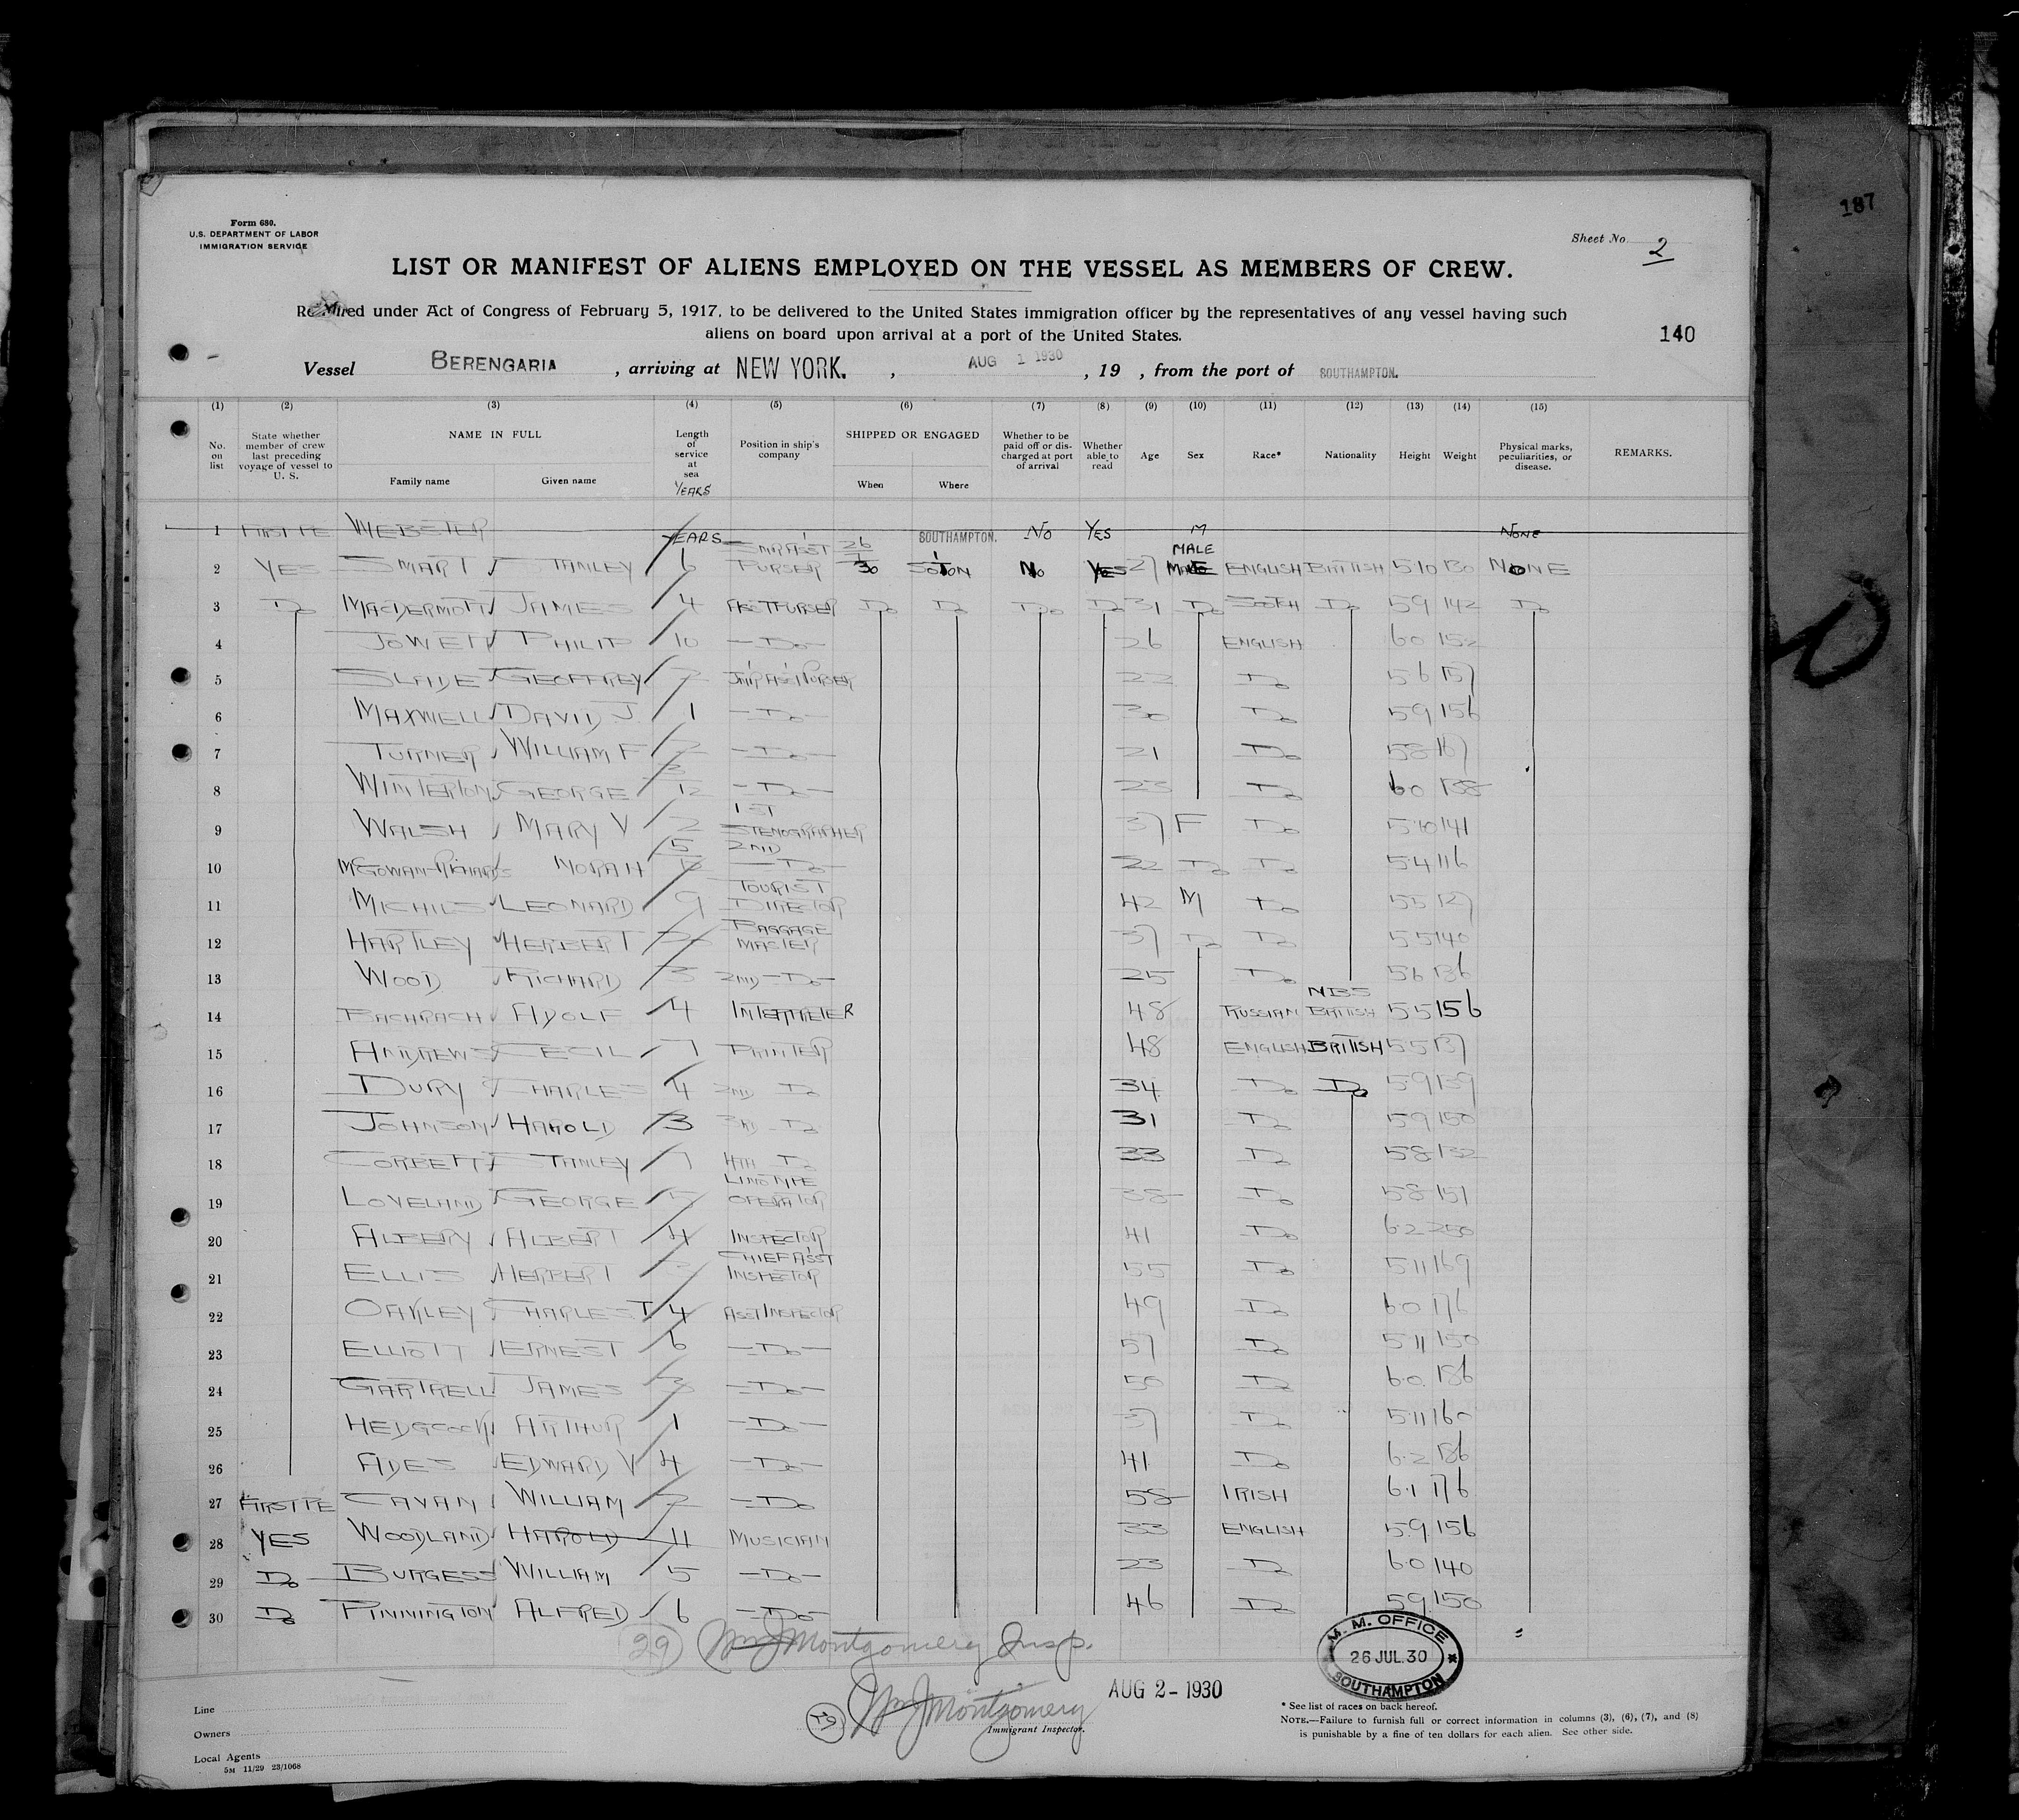 187
Form 680.
U.S. DEPARTMENT OF LABOR
IMMIGRATION SERVICE
Sheet No. 2
LIST OR MANIFEST OF ALIENS EMPLOYED ON THE VESSEL AS MEMBERS OF CREW.
Required under Act of Congress of February 5, 1917, to be delivered to the United States immigration officer by the representatives of any vessel having such
aliens on board upon arrival at a port of the United States.
140
Vessel BERENGARIA, arriving at NEW YORK. , AUG 1 1930 , 19 , from the port of SOUTHAMPTON.
(1) (2) (3) (4) (5) (6) (7) (8) (9) (10) (11) (12) (13) (14) (15)
No. on list State whether member of crew last preceding voyage of vessel to U. S. NAME IN FULL Family name Given name Length of service at sea YEARS Position in ship's company SHIPPED OR ENGAGED When Where Whether to be paid off or discharged at port of arrival Whether able to read Age Sex Race* Nationality Height Weight Physical marks, peculiarities, or disease. REMARKS.
1 FIRST PE WEBSTER YEARS SOUTHAMPTON. NO YES M NONE
2 YES SMART STANLEY 6 SNR ASST PURSER 26/7 30 SOTON NO YES 27 MALE ENGLISH BRITISH 5·10 130 NONE
3 DO MACDERMOTT JAMES 4 ASST PURSER DO DO DO DO 31 DO SCOTH DO 5 9 142 DO
4 JOWETT PHILIP 10 -DO- 26 ENGLISH 6 0 152
5 SLADE GEOFFREY 2 JNR ASST PURSER 22 DO 5 6 157
6 MAXWELL DAVID J 1 -DO- 30 DO 5 9 156
7 TURNER WILLIAM F 2 -DO- 21 DO 5 8 167
8 WINTERTON GEORGE 3/12 -DO- 23 DO 6 0 138
9 WALSH MARY V 2 1ST STENOGRAPHER 37 F DO 5·10 141
10 MCGOWAN-RICHARDS NORAH 5/12 2ND -DO- 22 DO DO 5 4 116
11 MICHILS LEONARD 9 TOURIST DIRECTOR 42 M DO 5 5 127
12 HARTLEY HERBERT BAGGAGE MASTER 37 DO DO 5 5 140
13 WOOD RICHARD 3 2ND -DO- 25 DO 5 6 136
14 BACHRACH ADOLF 4 INTERPRETER 48 RUSSIAN NBS BRITISH 5 5 156
15 ANDREWS CECIL 7 PRINTER 48 ENGLISH BRITISH 5 5 137
16 DURY CHARLES 4 2ND DO 34 DO DO 5 9 139
17 JOHNSON HAROLD 3 3RD -DO 31 DO 5 9 150
18 CORBETT STANLEY 7 4TH DO 33 DO 5 8 132
19 LOVELAND GEORGE 5 LINOTYPE OPERATOR 38 DO 5 8 151
20 ALBERY ALBERT 4 INSPECTOR 41 DO 6·2 250
21 ELLIS HERBERT 3 CHIEF ASST INSPECTOR 55 DO 5 11 169
22 OAKLEY CHARLES T 4 ASST INSPECTOR 49 DO 6·0 176
23 ELLIOTT ERNEST 6 -DO- 57 DO 5 11 150
24 GARTRELL JAMES 3 -DO- 50 DO 6·0 186
25 HEDGCOCK ARTHUR 1 -DO- 37 DO 5·11 160
26 ADES EDWARD V 4 -DO- 41 DO 6·2 186
27 FIRST PE CAVAN WILLIAM 2 -DO 58 IRISH 6·1 176
28 YES WOODLAND HAROLD 11 MUSICIAN 33 ENGLISH 5 9 156
29 DO BURGESS WILLIAM 5 -DO- 23 DO 6·0 140
30 DO PINNINGTON ALFRED 6 -DO- 46 DO 5 9 150
29 Wm J Montgomery Insp.
M. M. OFFICE
26 JUL. 30
SOUTHAMPTON
Wm J Montgomery
AUG 2 - 1930
Immigrant Inspector.
Line
Owners
Local Agents
5M 11/29 23/1068
* See list of races on back hereof.
NOTE.—Failure to furnish full or correct information in columns (3), (6), (7), and (8)
is punishable by a fine of ten dollars for each alien. See other side.